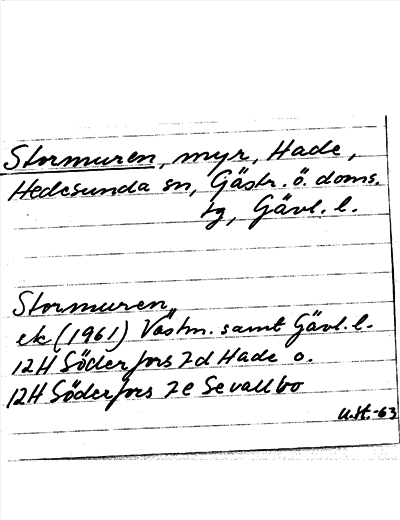 Stormuren, myr, Hade,
Hedesunda sn, Gästr. ö. doms.
tg, Gävl. l.
Stormuren,
ek (1961) Västm. samt Gävl. l.
12H Söderfors 7d Hade o.
12H Söderfors 7e Sevallbo
U.St.-63